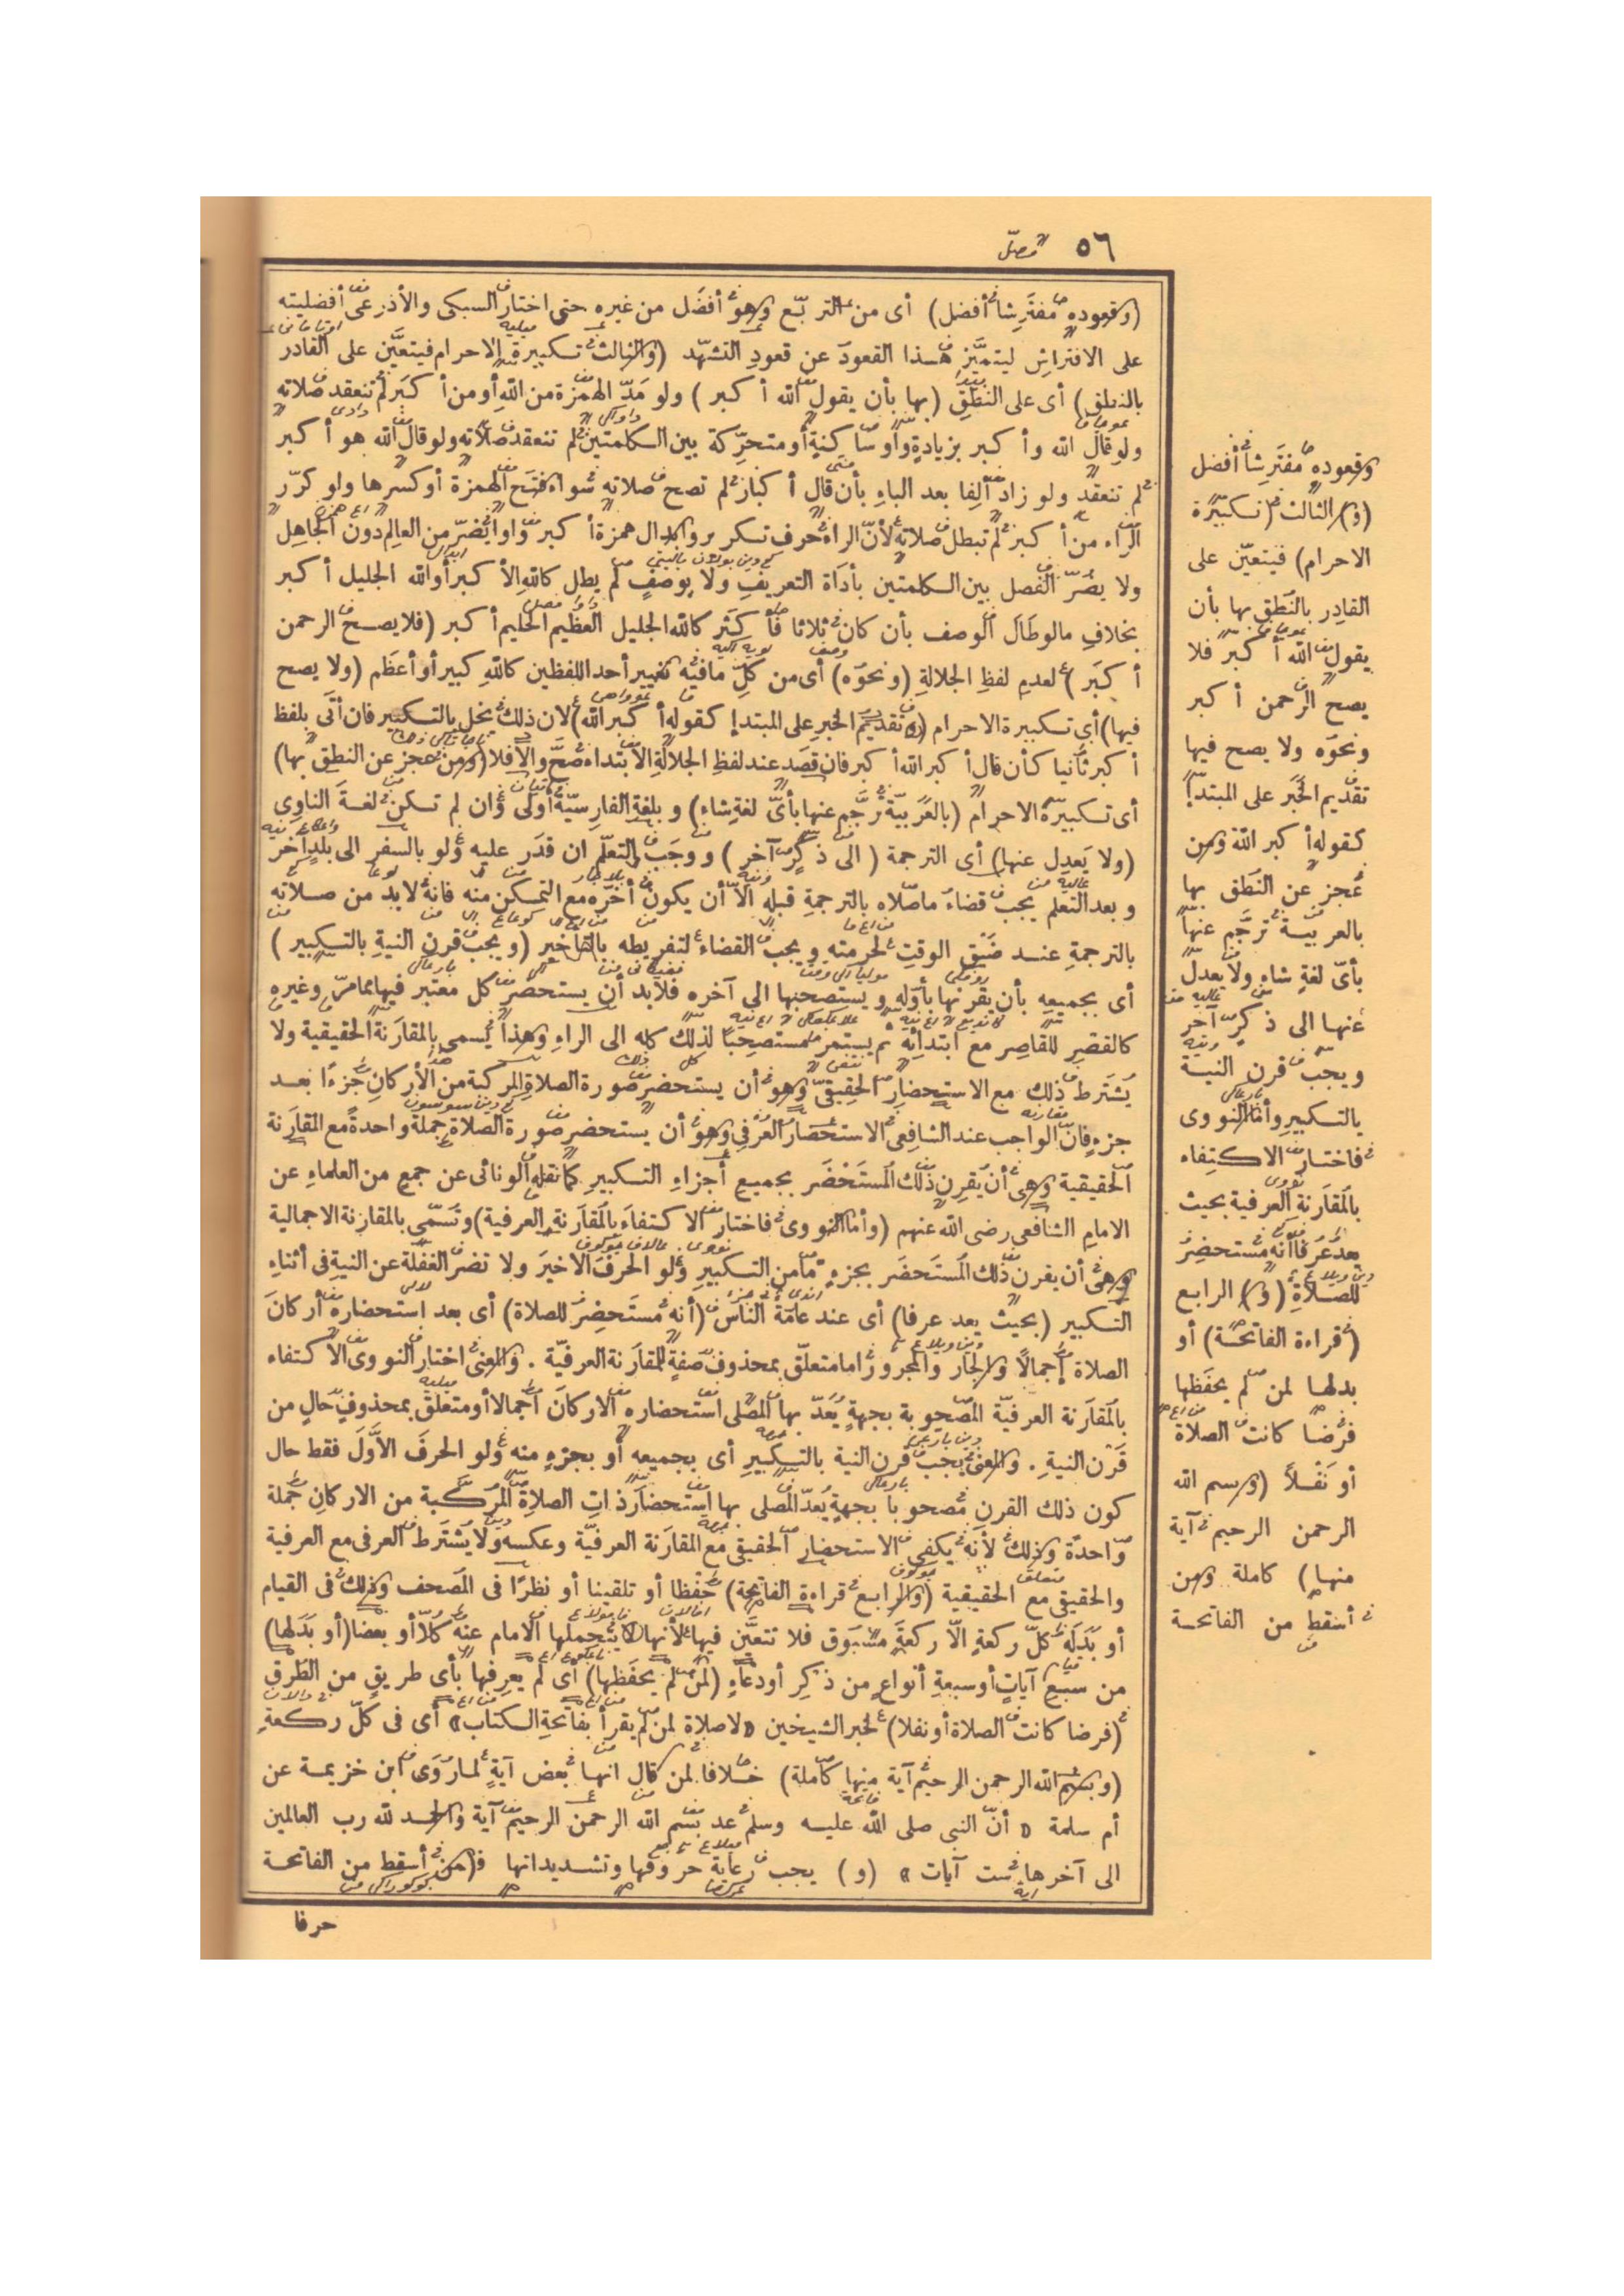 ٥٦
(وقعوده مفترشا أفضل) أى من التربّع وهو أفضل من غيره حتى اختار السبكى والأذرعى أفضليته
على الافتراش ليتميّز هذا القعود عن قعود التشهّد (والثالث تكبيرة الاحرام فيتعيّن على القادر
بالنطق) أى على النطق (بها بأن يقول الله أكبر) ولو مدّ الهمزة من الله أو من أكبر لم تنعقد صلاته
ولو قال الله وأكبر بزيادة واو ساكنة أو متحرّكة بين الكلمتين لم تنعقد صلاته ولو قال الله هو أكبر
لم تنعقد ولو زاد ألفا بعد الباء بأن قال أكبار لم تصح صلاته سواء فتح الهمزة أو كسرها ولو كرّر
الرّاء من أكبر لم تبطل صلاته لأنّ الراء حرف تكرير وابدال همزة أكبر واوا يضرّ من العالم دون الجاهل
ولا يضرّ الفصل بين الكلمتين بأداة التعريف ولا بوصف لم يطل كالله الأكبر أو الله الجليل أكبر
بخلاف ما لو طال الوصف بأن كان ثلاثا فأكثر كالله الجليل العظيم الحليم أكبر (فلا يصح الرحمن
أكبر) لعدم لفظ الجلالة (ونحوه) أى من كلّ ما فيه تغيير أحد اللفظين كالله كبير أو أعظم (ولا يصح
فيها) أى تكبيرة الاحرام (تقديم الخبر على المبتدإ كقوله أكبر الله) لان ذلك يخل بالتكبير فان أتى بلفظ
أكبر ثانيا كأن قال أكبر الله أكبر فان قصد عند لفظ الجلالة الابتداء صحّ والا فلا (ومن عجز عن النطق بها)
أى تكبيرة الاحرام (بالعربيّة ترجم عنها بأىّ لغة شاء) وبلغة الفارسيّة أولى وان لم تكن لغة الناوى
(ولا يعدل عنها) أى الترجمة (الى ذكر آخر) ووجب التعلّم ان قدر عليه ولو بالسفر الى بلد آخر
وبعد التعلم يجب قضاء ما صلاه بالترجمة قبله الاّ أن يكون أخّره مع التمكن منه فانه لابد من صلاته
بالترجمة عند ضيق الوقت لحرمته ويجب القضاء لتفريطه بالتأخير (ويجب قرن النية بالتكبير)
أى بجميعه بأن يقرنها بأوله ويستصحبها الى آخره فلابد أن يستحضر كل معتبر فيها مما مرّ وغيره
كالقصر للقاصر مع ابتدائه ثم يستمر مستصحبا لذلك كله الى الراء وهذا يسمى بالمقارنة الحقيقية ولا
يشترط ذلك مع الاستحضار الحقيقىّ وهو أن يستحضر صورة الصلاة المركبة من الأركان جزءا بعد
جزء فانّ الواجب عند الشافعى الاستحضار العرفى وهو أن يستحضر صورة الصلاة جملة واحدة مع المقارنة
الحقيقية وهى أن يقرن ذلك المستحضر بجميع أجزاء التكبير كما نقله الونائى عن جمع من العلماء عن
الامام الشافعى رضى الله عنهم (وأما النووى فاختار الاكتفاء بالمقارنة العرفية) وتسمّى بالمقارنة الاجمالية
وهى أن يقرن ذلك المستحضر بجزء ما من التكبير ولو الحرف الاخير ولا تضر الغفلة عن النية فى أثناء
التكبير (بحيث يعد عرفا) أى عند عامة الناس (أنه مستحضر للصلاة) أى بعد استحضاره أركان
الصلاة إجمالا والجار والمجرور اما متعلّق بمحذوف صفة للمقارنة العرفيّة . والمعنى اختار النووى الاكتفاء
بالمقارنة العرفيّة المصحوبة بجهة يعدّ بها المصلى استحضاره الاركان اجمالا أو متعلق بمحذوف حال من
قرن النية . والمعنى يجب قرن النية بالتكبير أى بجميعه أو بجزء منه ولو الحرف الأوّل فقط حال
كون ذلك القرن مصحوبا بجهة يعدّ المصلى بها استحضار ذات الصلاة المركبة من الاركان جملة
واحدة وذلك لأنه يكفى الاستحضار الحقيقى مع المقارنة العرفيّة وعكسه ولا يشترط العرفى مع العرفية
والحقيقى مع الحقيقية (والرابع قراءة الفاتحة) حفظا أو تلقينا أو نظرا فى المصحف وذلك فى القيام
أو بدله كلّ ركعة الاّ ركعة مسبوق فلا تتعيّن فيها لأنها يتحملها الامام عنه كلا أو بعضا (أو بدلها)
من سبع آيات أو سبعة أنواع من ذكر أو دعاء (لمن لم يحفظها) أى لم يعرفها بأى طريق من الطرق
(فرضا كانت الصلاة أو نفلا) لخبر الشيخين «لا صلاة لمن لم يقرأ بفاتحة الكتاب» أى فى كلّ ركعة
(وبسم الله الرحمن الرحيم آية منها كاملة) خلافا لمن قال انها بعض آية لما روى ابن خزيمة عن
أم سلمة «أنّ النبى صلى الله عليه وسلم عد بسم الله الرحمن الرحيم آية والحمد لله رب العالمين
الى آخرها ست آيات» (و) يجب رعاية حروفها وتشديداتها ف(من أسقط من الفاتحة
حرفا
وقعوده مفترشا أفضل
(و) الثالث (تكبيرة
الاحرام) فيتعيّن على
القادر بالنطق بها بأن
يقول الله أكبر فلا
يصح الرحمن أكبر
ونحوه ولا يصح فيها
تقديم الخبر على المبتدإ
كقوله أكبر الله ومن
عجز عن النطق بها
بالعربية ترجم عنها
بأىّ لغة شاء ولا يعدل
عنها الى ذكر آخر
ويجب قرن النية
بالتكبير وأما النووى
فاختار الاكتفاء
بالمقارنة العرفية بحيث
يعد عرفا أنه مستحضر
للصلاة (و) الرابع
(قراءة الفاتحة) أو
بدلها لمن لم يحفظها
فرضا كانت الصلاة
أو نفلا (وبسم الله
الرحمن الرحيم آية
منها) كاملة ومن
أسقط من الفاتحة